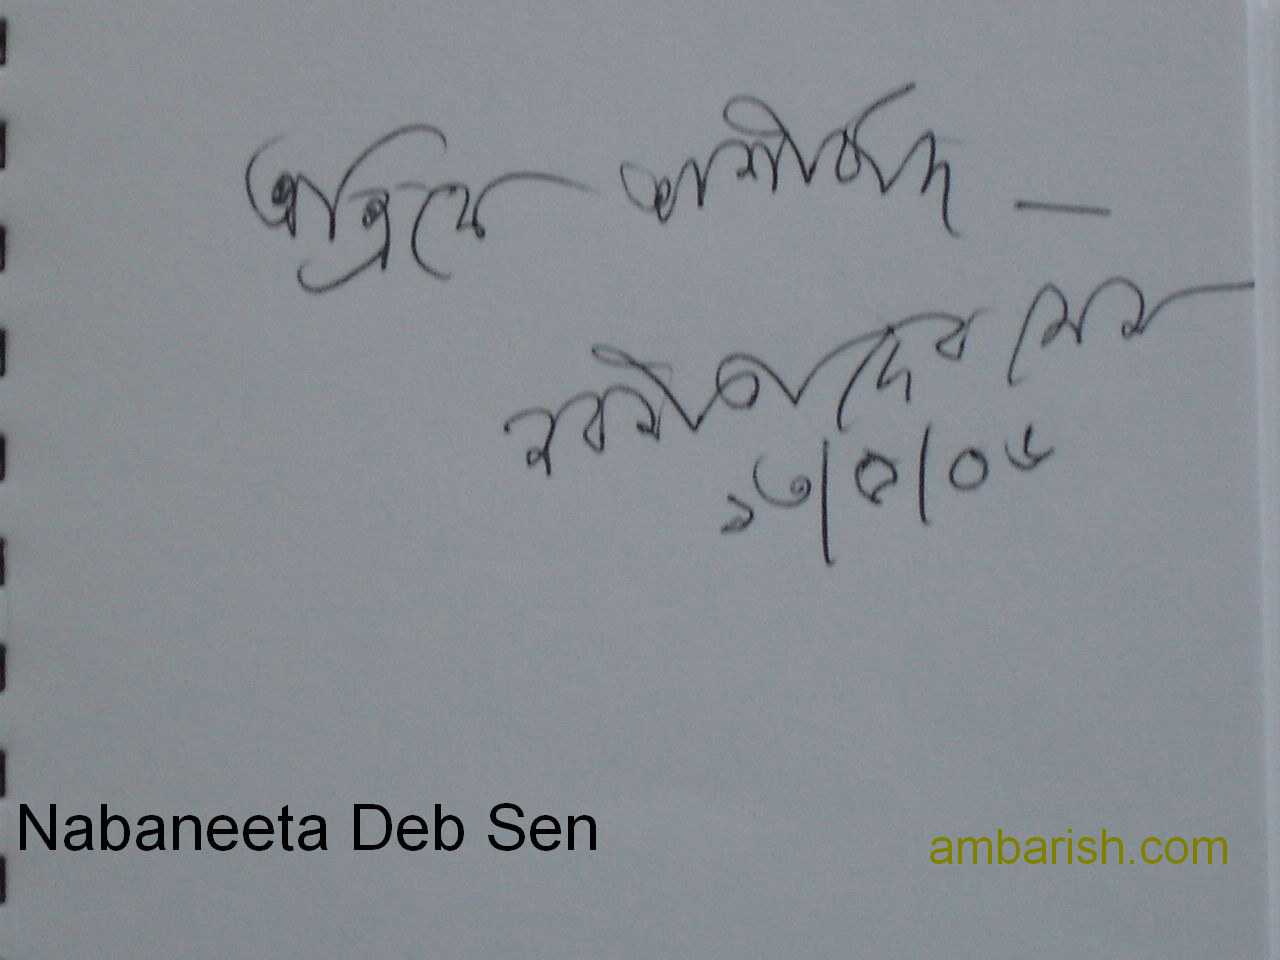 আশীর্বাদ —
নবনীতা দেব সেন
১৩/৫/০৬
Nabaneeta Deb Sen
ambarish.com